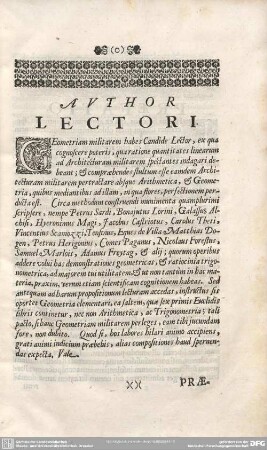 (0)
AVTHOR
LECTORI.
GEometriam militarem habes Candide Lector, ex qua
cognoscere poteris, qua ratione quantitates linearum
ad Architecturam militarem spectantes indagari de-
beant; & compræhendes stultum esse eandem Archi-
tecturam militarem pertractare absque Arithmetica, & Geome-
tria, quibus mediantibus ad illam, ad qua flores, perfectionem per-
ducta est. Circa methodum construendi munimenta quamplurimi
scripsere, nempe Petrus Sardi, Bonajutus Lorini, Galassus Al-
ghisi, Hyeronimus Magi, Jacobus Castriotus, Carolus Theti,
Vincentius Scamozzi, Tensinus, Eques de Villa Matthias Do-
gen, Petrus Herigonius, Comes Paganus, Nicolaus Forestus,
Samuel Marlois, Adamus Freytag, & alij; quorum operibus
addere volui has demonstrationes geometricas, & ratiocinia trigo-
nometrica, ad majorem tui utilitatem, & ut non tantum in hac ma-
teria, praxim, verum etiam scientificam cognitionem habeas. Sed
antequam ad harum propositionum lecturam accedas, instructus sis
oportet Geometria elementari, ea saltem, quæ sex primis Euclidis
libris continetur, nec non Arithmetica, ac Trigonometria; tali
pacto, si hanc Geometriam militarem perleges, eam tibi jucundam
fore, non dubito. Quod si, hos labores hilari animo accipiens,
grati animi indicium præbebis; alias compositiones haud spernen-
das expecta, Vale.
XX
PRÆ-